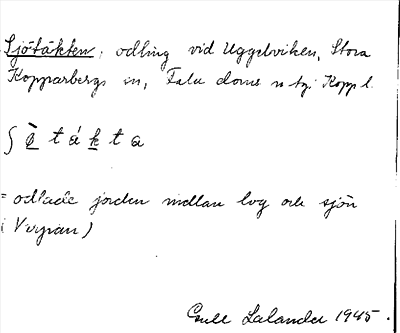 Sjötäkten, odling vid Uggelviken, Stora
Kopparbergs sn, Falu doms. n tgi Kopp l.
ʃ ö̀ t á k t a
= odlade jorden mellan berg och sjön
(Vurpan)
Gull Lalander 1945.